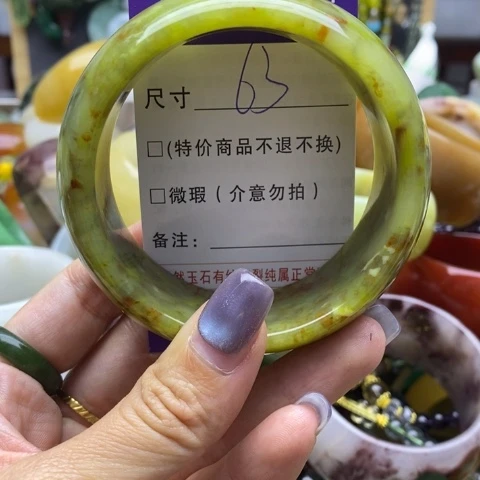 尺寸 63
□(特价商品不退不换)
□微瑕（介意勿拍）
备注：
然玉石有纹裂纯属正常